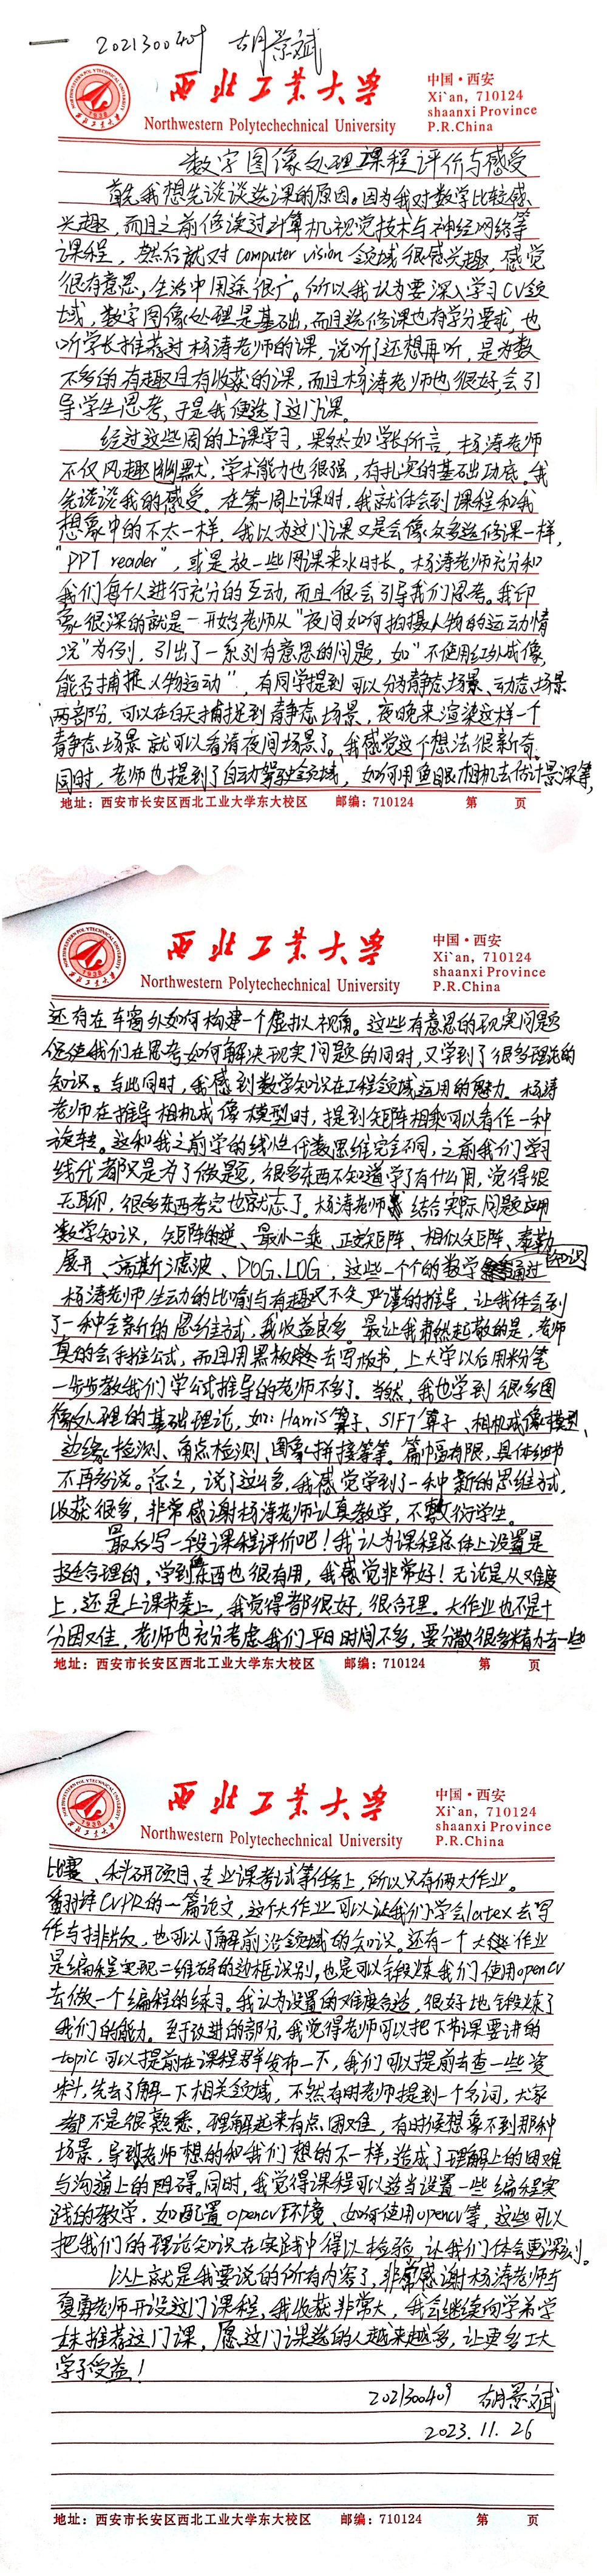 2021300409 胡景斌
西北工业大学
Northwestern Polytechechnical University
中国·西安
Xi`an, 710124
shaanxi Province
P.R.China
数字图像处理课程评价与感受
首先我想先谈谈选课的原因。因为我对数学比较感
兴趣，而且之前修读过计算机视觉技术与神经网络等
课程，然后就对computer vision领域很感兴趣，感觉
很有意思，生活中用途很广。所以我认为要深入学习CV领
域，数字图像处理是基础，而且选修课也有学分要求，也
听学长推荐过杨涛老师的课，说听了还想再听，是为数
不多的有趣且有收获的课，而且杨涛老师也很好，会引
导学生思考，于是我便选了这门课。
经过这些周的上课学习，果然如学长所言，杨涛老师
不仅风趣幽默，学术能力也很强，有扎实的基础功底。我
先谈谈我的感受。在第一周上课时，我就体会到课程和我
想象中的不太一样，我以为这门课又是会像众多选修课一样，
"PPT reader"，或是放一些网课来水时长。杨涛老师充分和
我们每个人进行充分的互动，而且很会引导我们思考。我印
象很深的就是一开始老师从"夜间如何拍摄人物的运动情
况"为例，引出了一系列有意思的问题，如"不使用红外成像，
能否捕捉人物运动"，有同学提到可以分为静态场景、动态场景
两部分，可以在白天捕捉到静态场景，夜晚来渲染这样一个
静态场景就可以看清夜间场景了。我感觉这个想法很新奇。
同时，老师也提到了自动驾驶领域，如何用鱼眼相机去估计景深等，
地址：西安市长安区西北工业大学东大校区 邮编：710124 第 页
西北工业大学
Northwestern Polytechechnical University
中国·西安
Xi`an, 710124
shaanxi Province
P.R.China
还有在车窗外如何构建一个虚拟视角。这些有意思的现实问题
促使我们在思考如何解决现实问题的同时，又学到了很多理论的
知识。与此同时，我感到数学知识在工程领域运用的魅力。杨涛
老师在推导相机成像模型时，提到矩阵相乘可以看作一种
旋转。这和我之前学的线性代数思维完全不同，之前我们学习
线代都只是为了做题，很多东西不知道学了有什么用，觉得很
无聊，很多东西考完也就忘了。杨涛老师结合实际问题应用
数学知识，矩阵的逆、最小二乘、正交矩阵、相似矩阵、泰勒
展开、高斯滤波、DOG、LOG，这些一个个的数学知识通过
杨涛老师生动的比喻与有趣又不失严谨的推导，让我体会到
了一种全新的思维方式，我收益良多。最让我肃然起敬的是，老师
真的会手推公式，而且用黑板去写板书，上大学以后用粉笔
一步步教我们学公式推导的老师不多了。当然，我也学到很多图
像处理的基础理论，如：Harris算子、SIFT算子、相机成像模型、
边缘检测、角点检测、图像拼接等等。篇幅有限，具体细节
不再多说。总之，说了这么多，我感觉学到了一种新的思维方式，
收获很多，非常感谢杨涛老师认真教学，不敷衍学生。
最后写一段课程评价吧！我认为课程总体上设置是
挺合理的，学到东西也很有用，我感觉非常好！无论是从难度
上，还是上课节奏上，我觉得都很好，很合理。大作业也不是十
分困难，老师也充分考虑我们平日时间不多，要分散很多精力去一些
地址：西安市长安区西北工业大学东大校区 邮编：710124 第 页
西北工业大学
Northwestern Polytechechnical University
中国·西安
Xi`an, 710124
shaanxi Province
P.R.China
比赛、科研项目、专业课考试等任务上，所以只有俩大作业。
翻译CVPR的一篇论文，这个大作业可以让我们学会latex去写
作与排版，也可以了解前沿领域的知识。还有一个大作业
是编程实现二维码的边框识别，也是可以锻炼我们使用opencv
去做一个编程的练习。我认为设置的难度合适，很好地锻炼了
我们的能力。至于改进的部分，我觉得老师可以把下节课要讲的
topic可以提前在课程群发布一下，我们可以提前去查一些资
料，先去了解一下相关领域，不然有时老师提到一个名词，大家
都不是很熟悉，理解起来有点困难，有时候想象不到那种
场景，导致老师想的和我们想的不一样，造成了理解上的困难
与沟通上的阻碍。同时，我觉得课程可以适当设置一些编程实
践的教学，如配置opencv环境、如何使用opencv等，这些可以
把我们的理论知识在实践中得以检验，让我们体会更深刻。
以上就是我要说的所有内容了，非常感谢杨涛老师与
夏勇老师开设这门课程，我收获非常大，我会继续向学弟学
妹推荐这门课，愿这门课选的人越来越多，让更多工大
学子受益！
2021300409 胡景斌
2023.11.26
地址：西安市长安区西北工业大学东大校区 邮编：710124 第 页